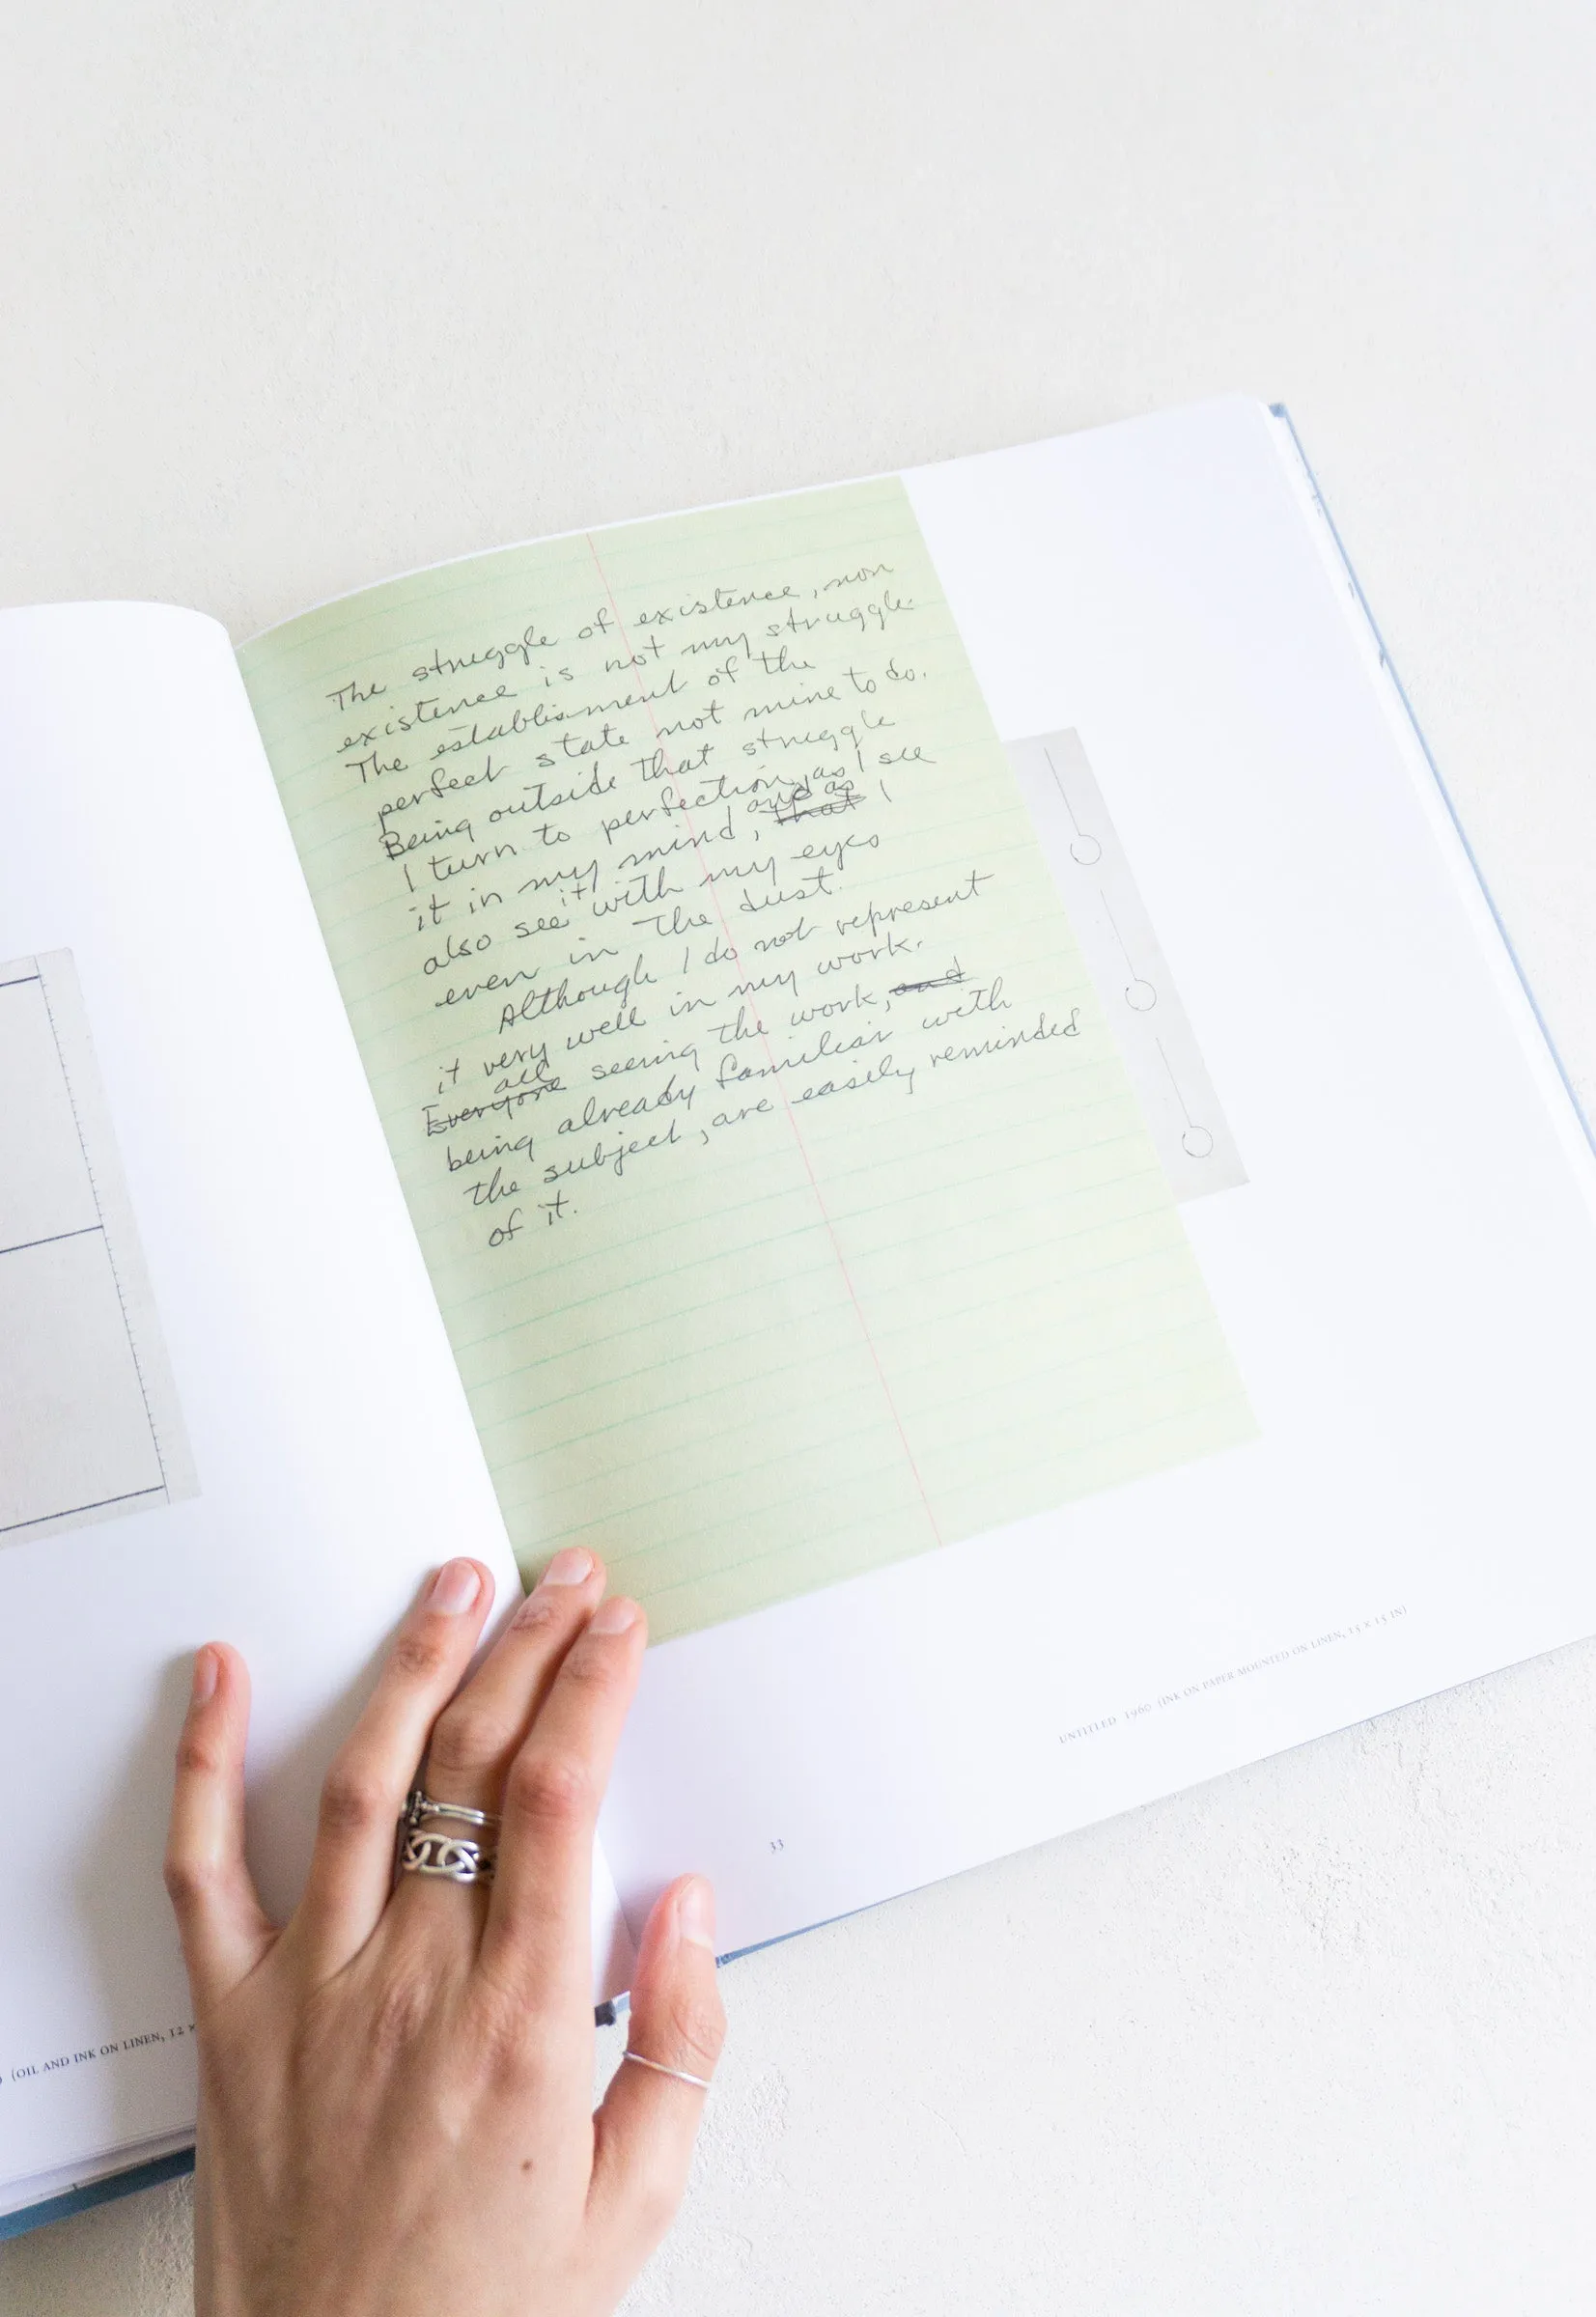 The struggle of existence, non
existence is not my struggle.
The establisment of the
perfect state not mine to do.
Being outside that struggle
I turn to perfection, as I see
it in my mind, ~~that~~ and as I
also see it with my eyes
even in the dust.
Although I do not represent
it very well in my work.
~~Everyone~~ all seeing the work, ~~and~~
being already familiar with
the subject, are easily reminded
of it.
UNTITLED 1960 (INK ON PAPER MOUNTED ON LINEN, 15 × 15 IN)
33
(OIL AND INK ON LINEN, 12 ×